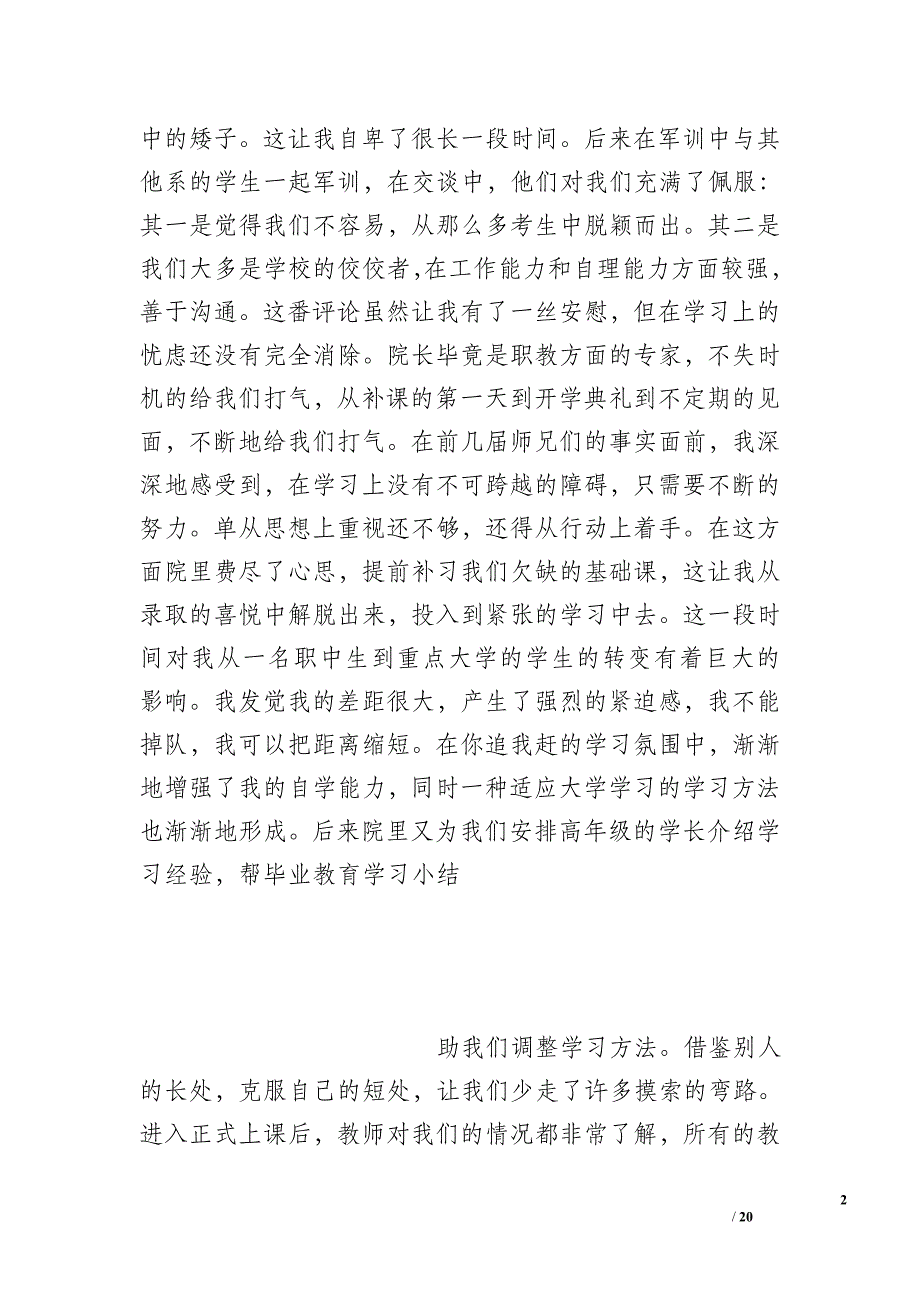 中的矮子。这让我自卑了很长一段时间。后来在军训中与其
他系的学生一起军训，在交谈中，他们对我们充满了佩服：
其一是觉得我们不容易，从那么多考生中脱颖而出。其二是
我们大多是学校的佼佼者,在工作能力和自理能力方面较强，
善于沟通。这番评论虽然让我有了一丝安慰，但在学习上的
忧虑还没有完全消除。院长毕竟是职教方面的专家，不失时
机的给我们打气，从补课的第一天到开学典礼到不定期的见
面，不断地给我们打气。在前几届师兄们的事实面前，我深
深地感受到，在学习上没有不可跨越的障碍，只需要不断的
努力。单从思想上重视还不够，还得从行动上着手。在这方
面院里费尽了心思，提前补习我们欠缺的基础课，这让我从
录取的喜悦中解脱出来，投入到紧张的学习中去。这一段时
间对我从一名职中生到重点大学的学生的转变有着巨大的
影响。我发觉我的差距很大，产生了强烈的紧迫感，我不能
掉队，我可以把距离缩短。在你追我赶的学习氛围中，渐渐
地增强了我的自学能力，同时一种适应大学学习的学习方法
也渐渐地形成。后来院里又为我们安排高年级的学长介绍学
习经验，帮毕业教育学习小结
助我们调整学习方法。借鉴别人
的长处，克服自己的短处，让我们少走了许多摸索的弯路。
进入正式上课后，教师对我们的情况都非常了解，所有的教
2
/ 20